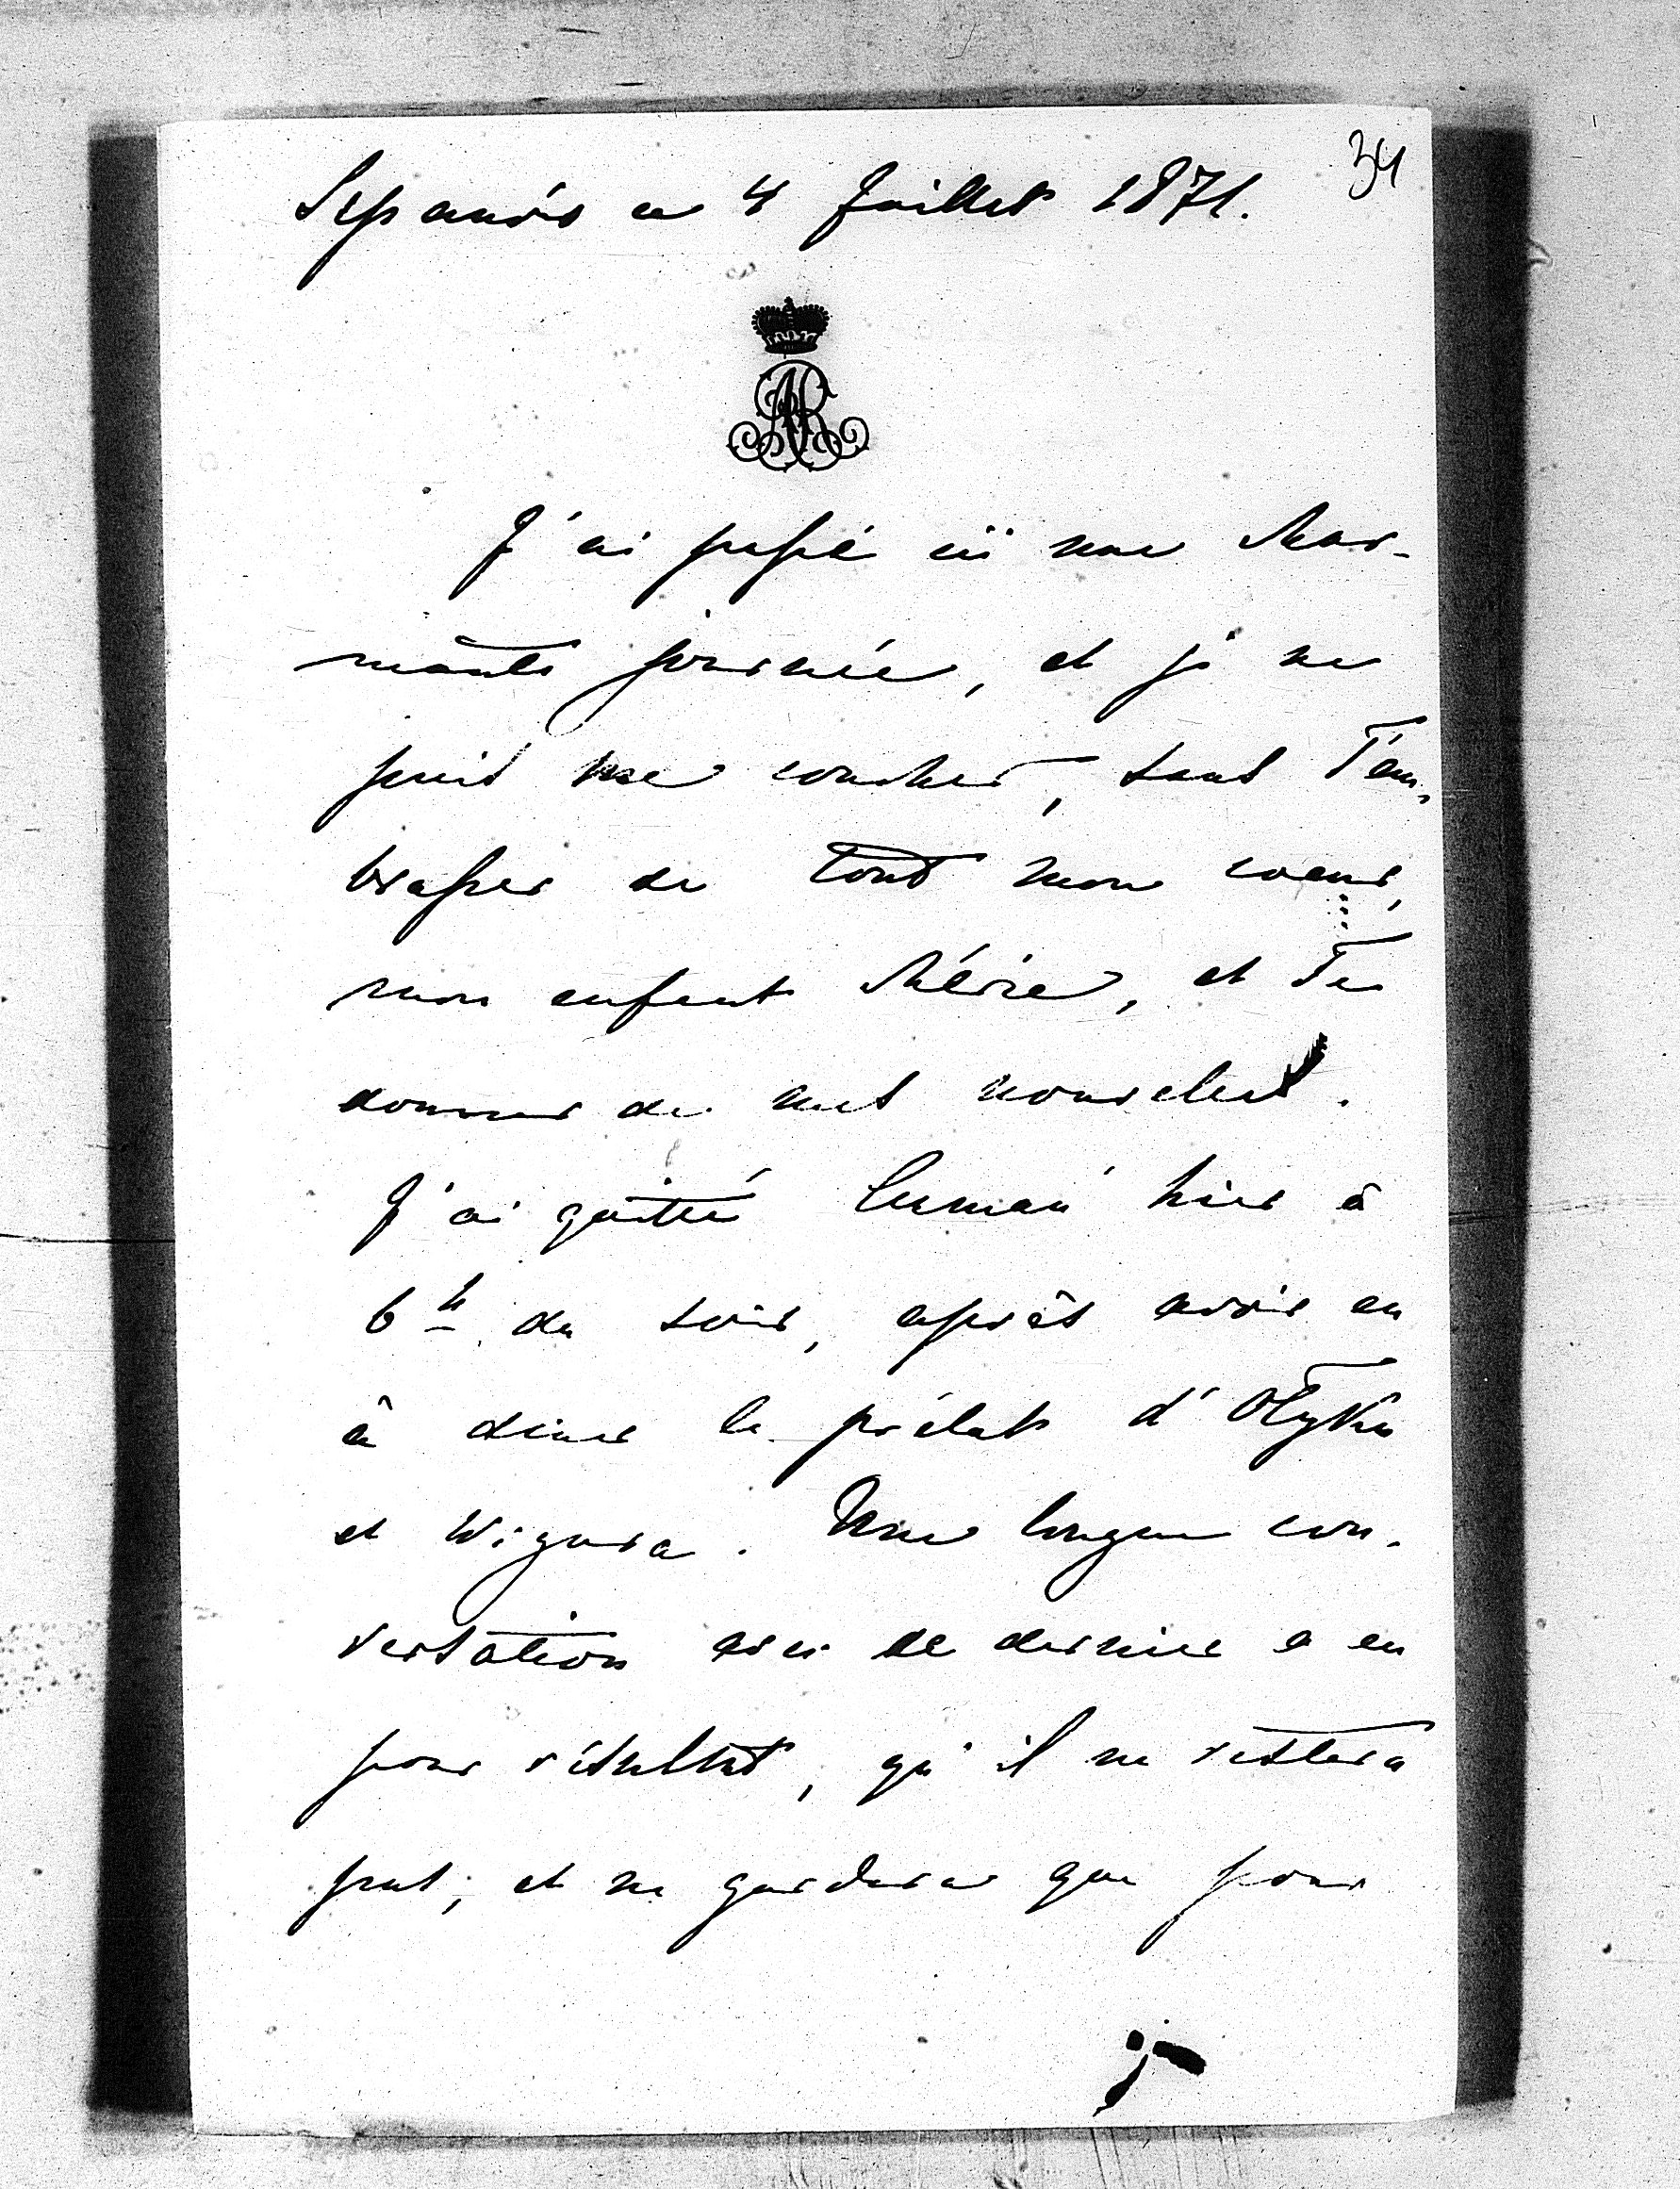 34
ce 4 Juillet 1871.
AR
J'ai passé ici une char-
mante journée, et je ne
puis me coucher, sans T'em-
brasser de tout mon coeur,
mon enfant chérie, et Te
donner de mes nouvelles.
J'ai quitté hier à
6 h du soir, après avoir eu
à diner le prélat d'Olyka
et Wigura. Une longue con-
versation avec ce dernier a eu
pour résultat, qu'il ne restera
pas, et ne gardera que pour